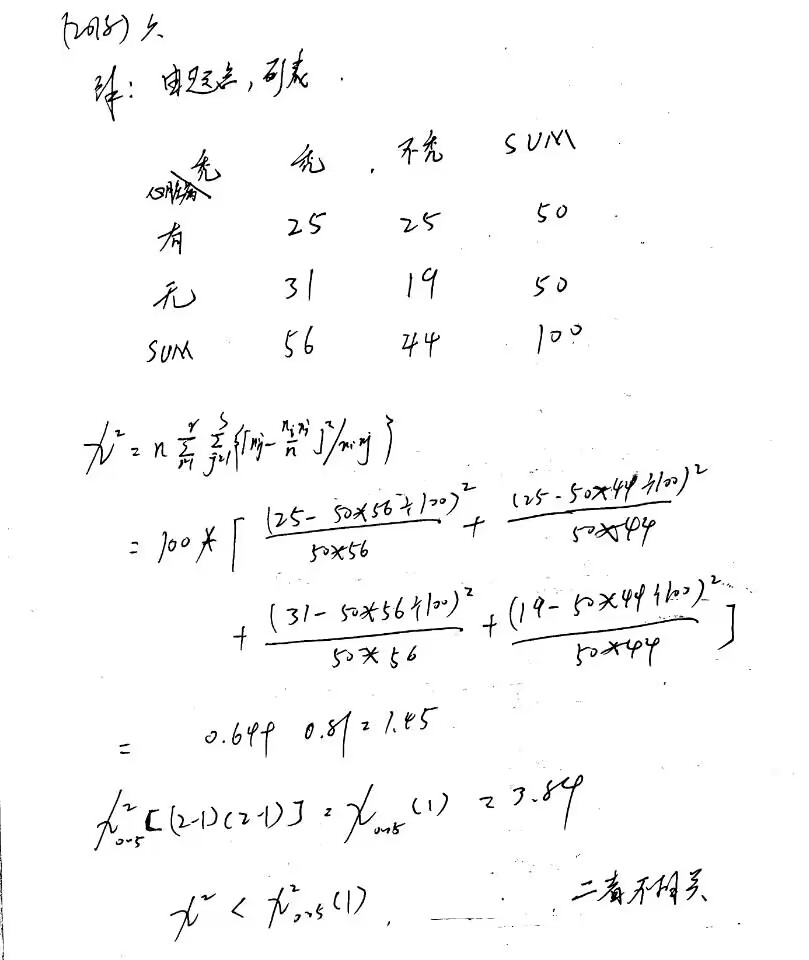 (2018) 六
解：由题意，列表.
秃 秃 不秃 SUM
心脏病
有 25 25 50
无 31 19 50
SUM 56 44 100
χ² = n Σ_{i=1}^{r} Σ_{j=1}^{s} {[n_{ij} - \frac{n_i n_j}{n}]²/n_i n_j}
= 100 * [ \frac{(25 - 50*56÷100)²}{50*56} + \frac{(25 - 50*44÷100)²}{50*44}
+ \frac{(31 - 50*56÷100)²}{50*56} + \frac{(19 - 50*44÷100)²}{50*44} ]
= 0.64+ 0.81 = 1.45
χ²_{0.05}[(2-1)(2-1)] = χ_{0.05}(1) = 3.84
χ² < χ²_{0.05}(1). 二者不相关